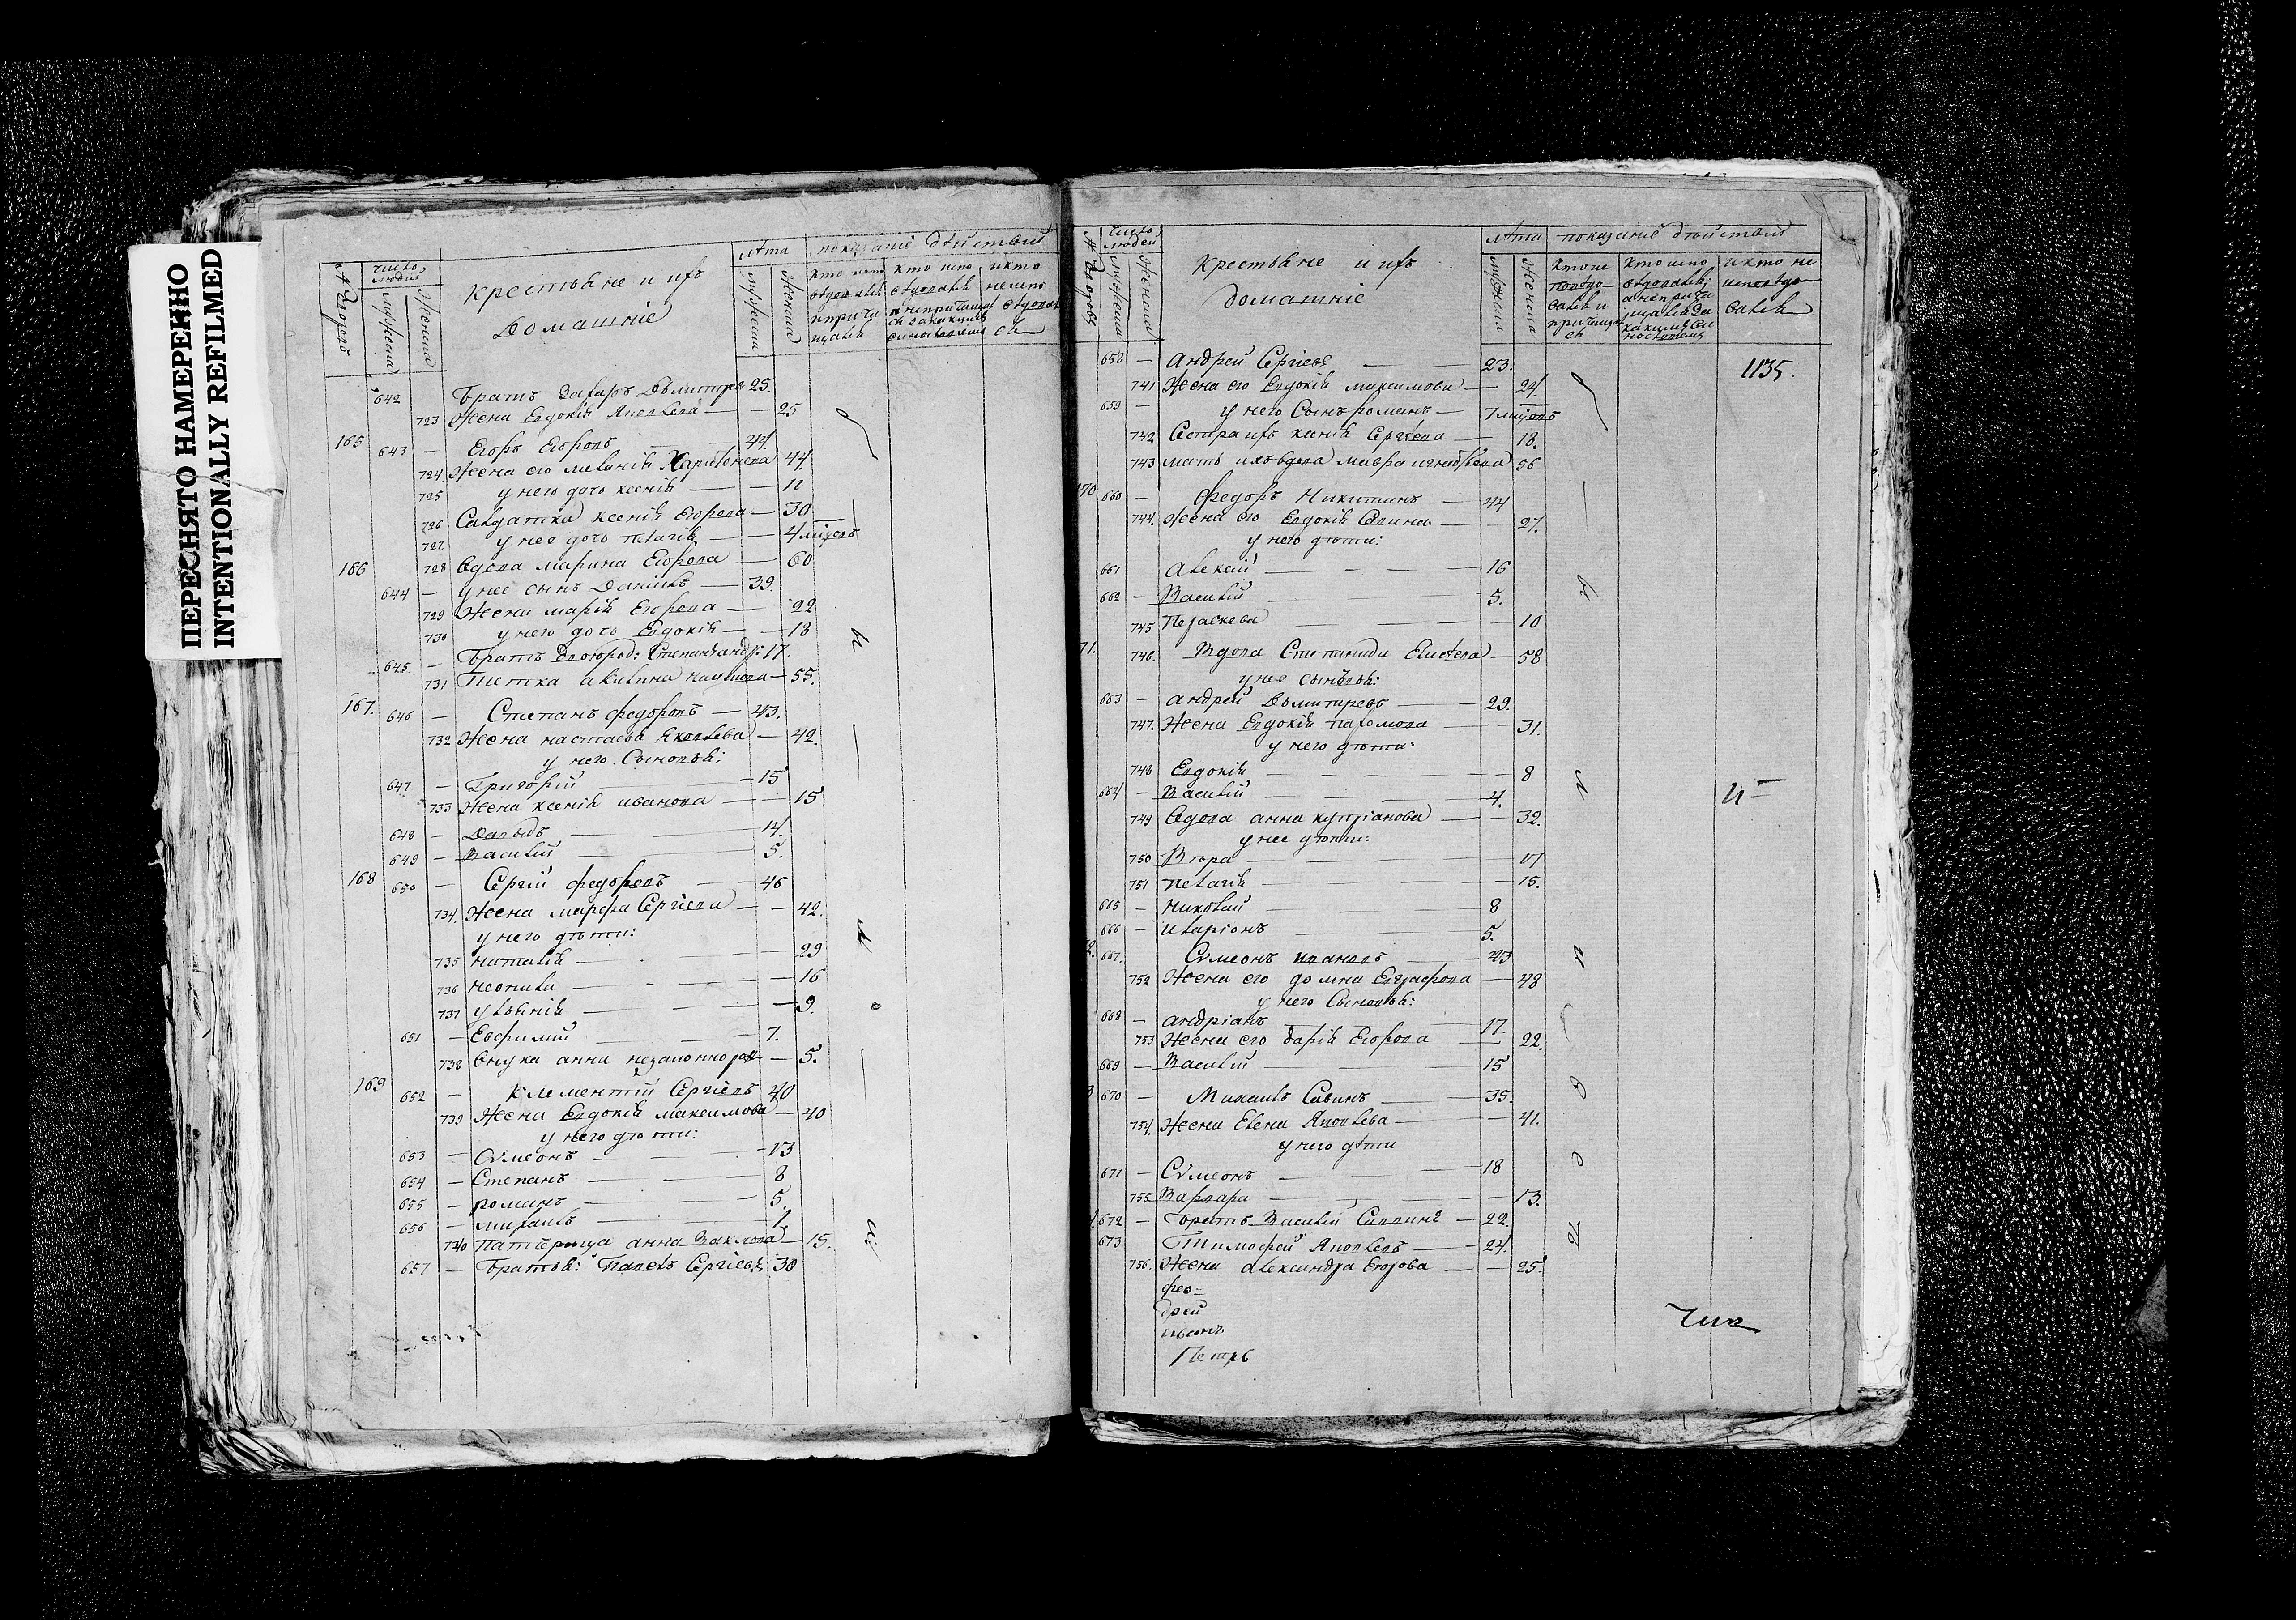 ПЕРЕСНЯТО НАМЕРЕННО
INTENTIONALLY REFILMED
№ дворовъ
число людей
мужеска
женска
крестьяне и ихъ
домашніе
лѣта
мужеска
женска
показаніе дѣйствія
642 Братъ Захаръ Дъмитрев 25.
723 Жена Евдокія Яковлева — — 25
165 643 — Егоръ Егоровъ — — 44.
724 Жена его меланія Харитонова 44
725 у него дочь ксенія — — 11
726 Салдатка ксенія Егорова — 30
727 у нее дочь пелагія — — 4 мцовъ
166 728 Вдова марина Егорова — 60
644 — у нее сынъ Данилъ — 39.
729 Жена марія Егорова — 22
730 у него дочь Евдокія — — 18
645 — Братъ Двоюрод: Степанъ андр: 17.
731 Тетка акилина наумова — 55.
167. 646 — Степанъ федоровъ — 43.
732 Жена настасья Яковлева — 42.
у него Сыновья:
647 — Григорій — 15
733 Жена ксенія иванова — — 15
648 — Давыдъ — 14.
649 — Василій — 5.
168 650 — Сергій федоровъ — 46
734. Жена марфа Сергіева — — 42.
у него дѣти:
735 наталія — — 29
736 неонила — — 16
737 ульянія — — 9.
651 — Евфимій — 7.
738 Внука анна незаконнорож — 5.
169 652 — Клементій Сергіевъ 40
739 Жена Евдокія максимова — 40
у него дѣти:
653 — Сѵмеонъ — 13
654 — Степанъ — 8
655 — романъ — 5.
656 — михаилъ — 1.
740 падчерица анна — 15.
657 — Братья: Павелъ Сергіевъ 30
№ дворовъ
число людей
мужеска
женска
крестьяне и ихъ
домашніе
лѣта
мужеска
женска
показаніе дѣйствія
658 — Андрей Сергіевъ — 23.
1135.
741 Жена его Евдокія максимова — 24.
659 — у него Сынъ романъ — 7 мцовъ
742 Сестра ихъ ксенія Сергіева — 18.
743 мать ихъ вдова мавра игнатьева 56
170 660 — федоръ Никитинъ — 44
744. Жена его Евдокія Савина — — 27.
у него дѣти:
661 Алекси — — 16
662 — Василій — 5.
745 Параскева — — 10
71. 746. Вдова Степанида — 58
у нее сыновья:
663 — андрей Дъмитревъ — 29.
747. Жена Евдокія пахомова — — 31.
у него дѣти:
748 Евдокія — — 8
664 — Василій — 4.
749 Вдова анна купріанова — — 32.
у нее дѣти:
750 Вѣра — — 17
751 пелагія — — 15.
665 — николай — 8
666 — иларіонъ — 5.
667. Сѵмеонъ ивановъ — 43
752 Жена его домна Евграфова — 48
у него Сыновья:
668 — андріанъ — 17.
753 Жена его дарія Егорова — 22.
669 — Василій — 15
670 — Михаилъ Савинъ — 35.
754 Жена Елена Яковлева — — 41.
у него дѣти
671 — Сѵмеонъ — 18
755 Варвара — — 13.
672 — Братъ Василій Саввинъ — 22.
673 Тимофей Яковлевъ — 24.
756. Жена александра Егорова — — 25.
Петръ